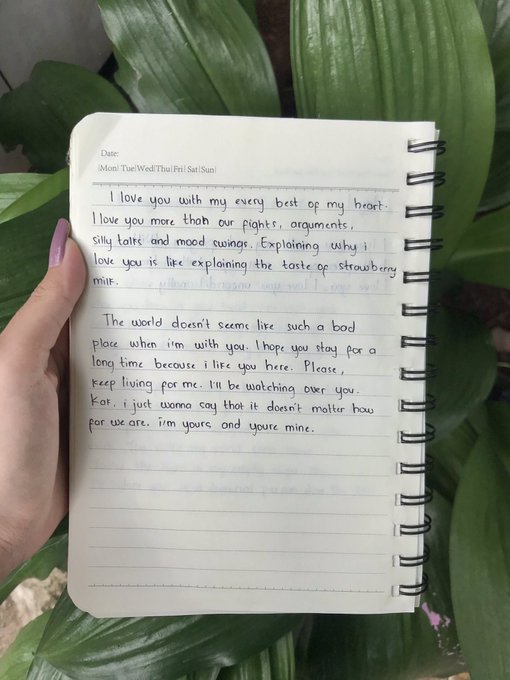 Date:
|Mon| Tue|Wed|Thu|Fri| Sat|Sun|
I love you with my every best of my heart.
I love you more than our fights, arguments,
silly talks and mood swings. Explaining why i
love you is like explaining the taste of strawberry
milk.
The world doesn't seems like such a bad
place when i'm with you. I hope you stay for a
long time because i like you here. Please,
keep living for me. I'll be watching over you.
Kak, i just wanna say that it doesn't matter how
far we are. i'm yours and youre mine.